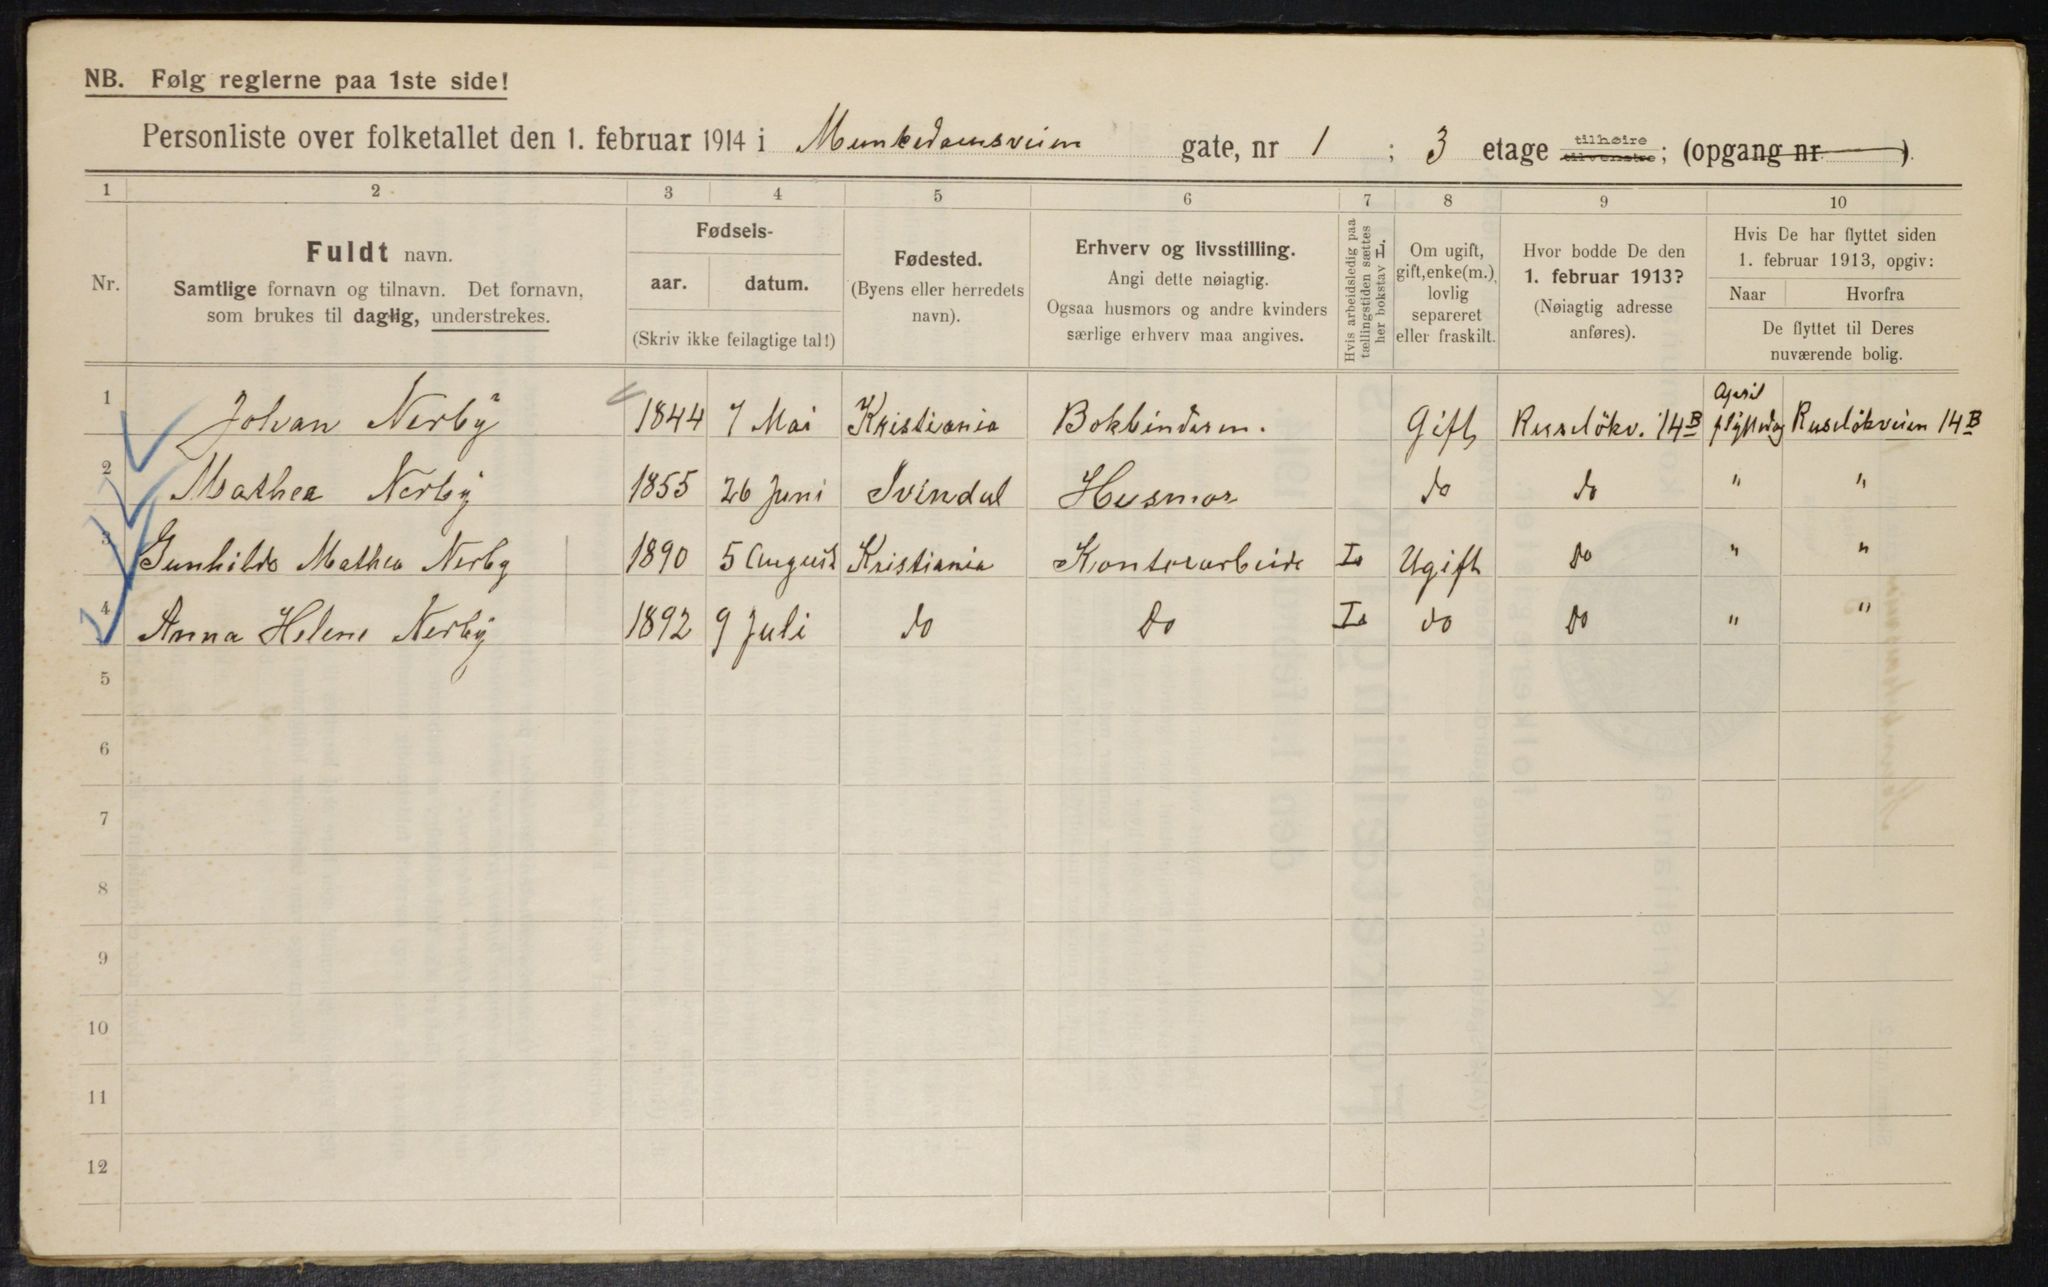 NB. Følg reglerne paa 1ste side!
Personliste over folketallet den 1. februar 1914 i Munkedamsveien gate, nr 1 ; 3 etage tilhøire tilvenstre; (opgang nr )
1 2 3 4 5 6 7 8 9 10
Nr.
Fuldt navn.
Samtlige fornavn og tilnavn. Det fornavn,
som brukes til daglig, understrekes.
Fødsels-
aar. datum.
(Skriv ikke feilagtige tal!)
Fødested.
(Byens eller herredets
navn).
Erhverv og livsstilling.
Angi dette nøiagtig.
Ogsaa husmors og andre kvinders
særlige erhverv maa angives.
Hvis arbeidsledig paa
tællingstiden sættes
her bokstav L.
Om ugift,
gift, enke(m.),
lovlig
separeret
eller fraskilt.
Hvor bodde De den
1. februar 1913?
(Nøiagtig adresse
anføres).
Hvis De har flyttet siden
1. februar 1913, opgiv:
Naar Hvorfra
De flyttet til Deres
nuværende bolig.
1 Johan Nerby 1844 7 Mai Kristiania Bokbinderm. Gift Ruseløkv. 14B April flyttedag Ruseløkveien 14B
2 Mathea Nerby 1855 26 Juni Svindal Husmor do do " "
3 Gunhilde Mathea Nerby 1890 5 August Kristiania Kontorarbeide Ugift Do " "
4 Anna Helene Nerby 1892 9 Juli do Do do Do " "
5
6
7
8
9
10
11
12